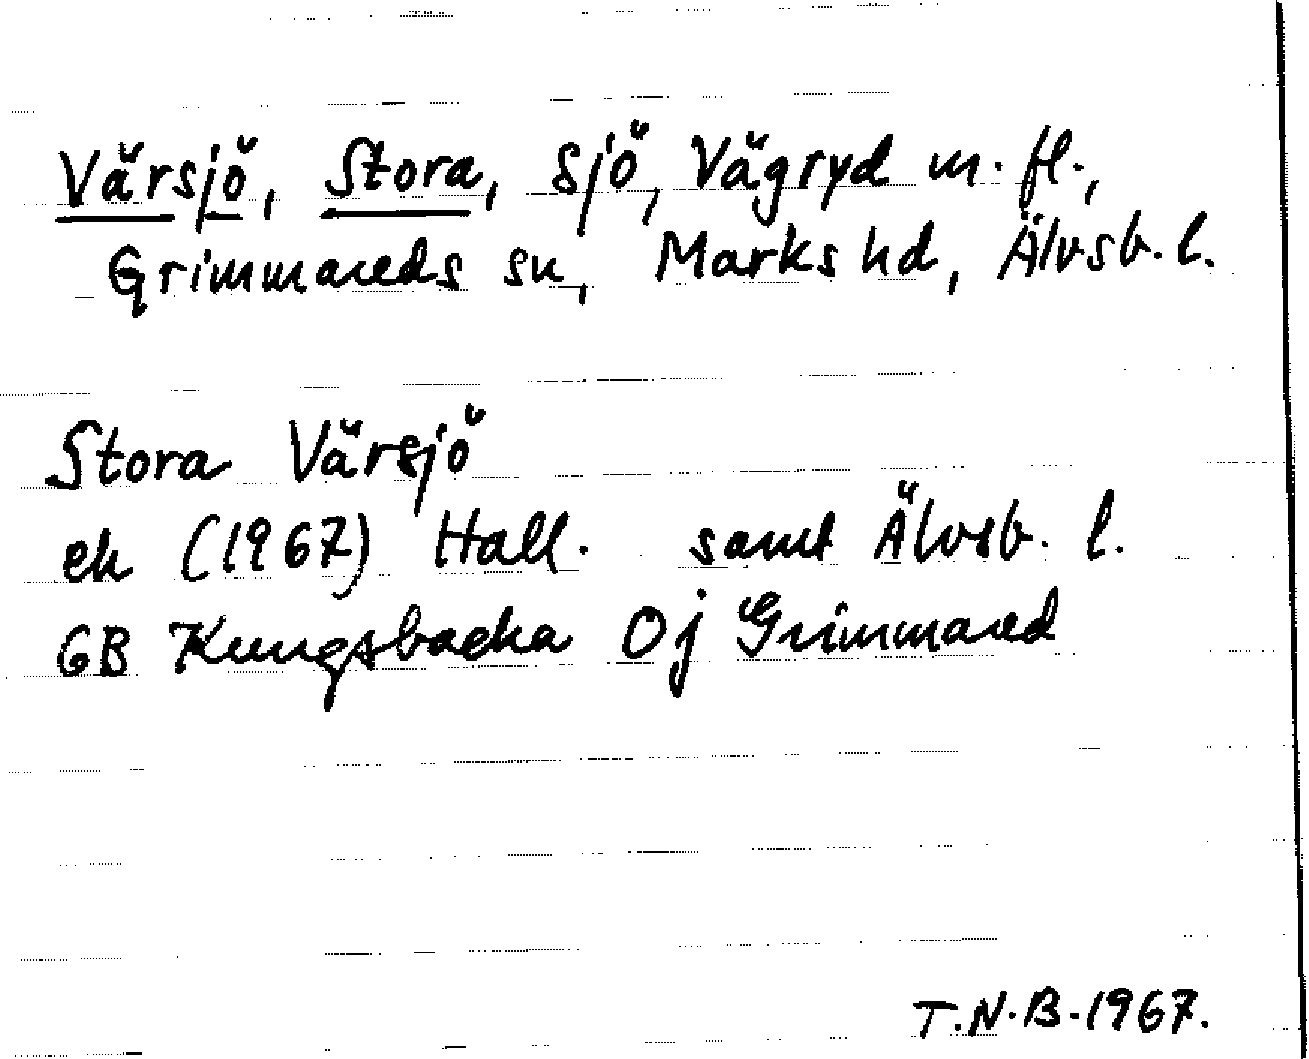 Värsjö, Stora, sjö, Vägryd m. fl.,
Grimmareds sn, Marks hd, Älvsb. l.
Stora Värsjö
ek (1967) Hall. samt Älvsb. l.
6B Kungsbacka 0j Grimmared
T.N.B. 1967.